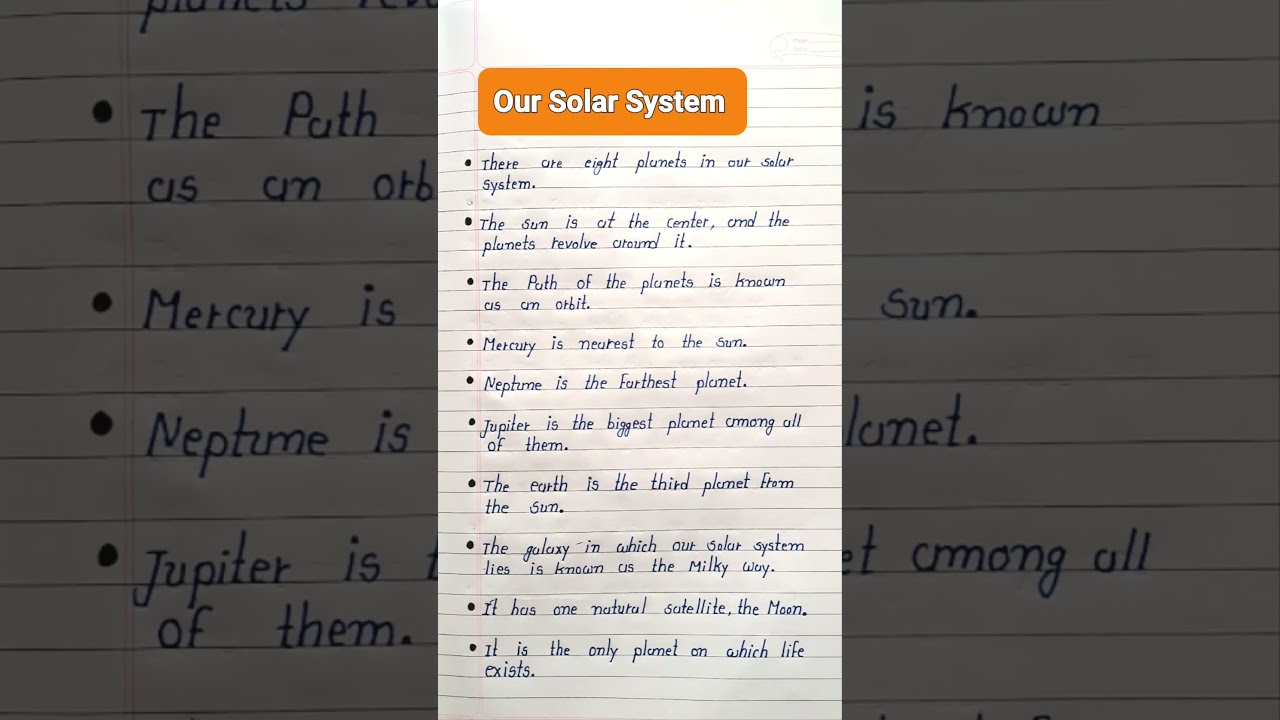 Our Solar System
• There are eight planets in our solar
system.
• The sun is at the center, and the
planets revolve around it.
• The Path of the planets is known
as an orbit.
• Mercury is nearest to the sun.
• Neptune is the Farthest planet.
• Jupiter is the biggest planet among all
of them.
• The earth is the third planet From
the sun.
• The galaxy in which our solar system
lies is known as the Milky way.
• It has one natural satellite, the Moon.
• It is the only planet on which life
exists.
• The Path
is known
as an orb
• Mercury is
sun.
• Neptune is
lanet.
• Jupiter is
et among all
of them.